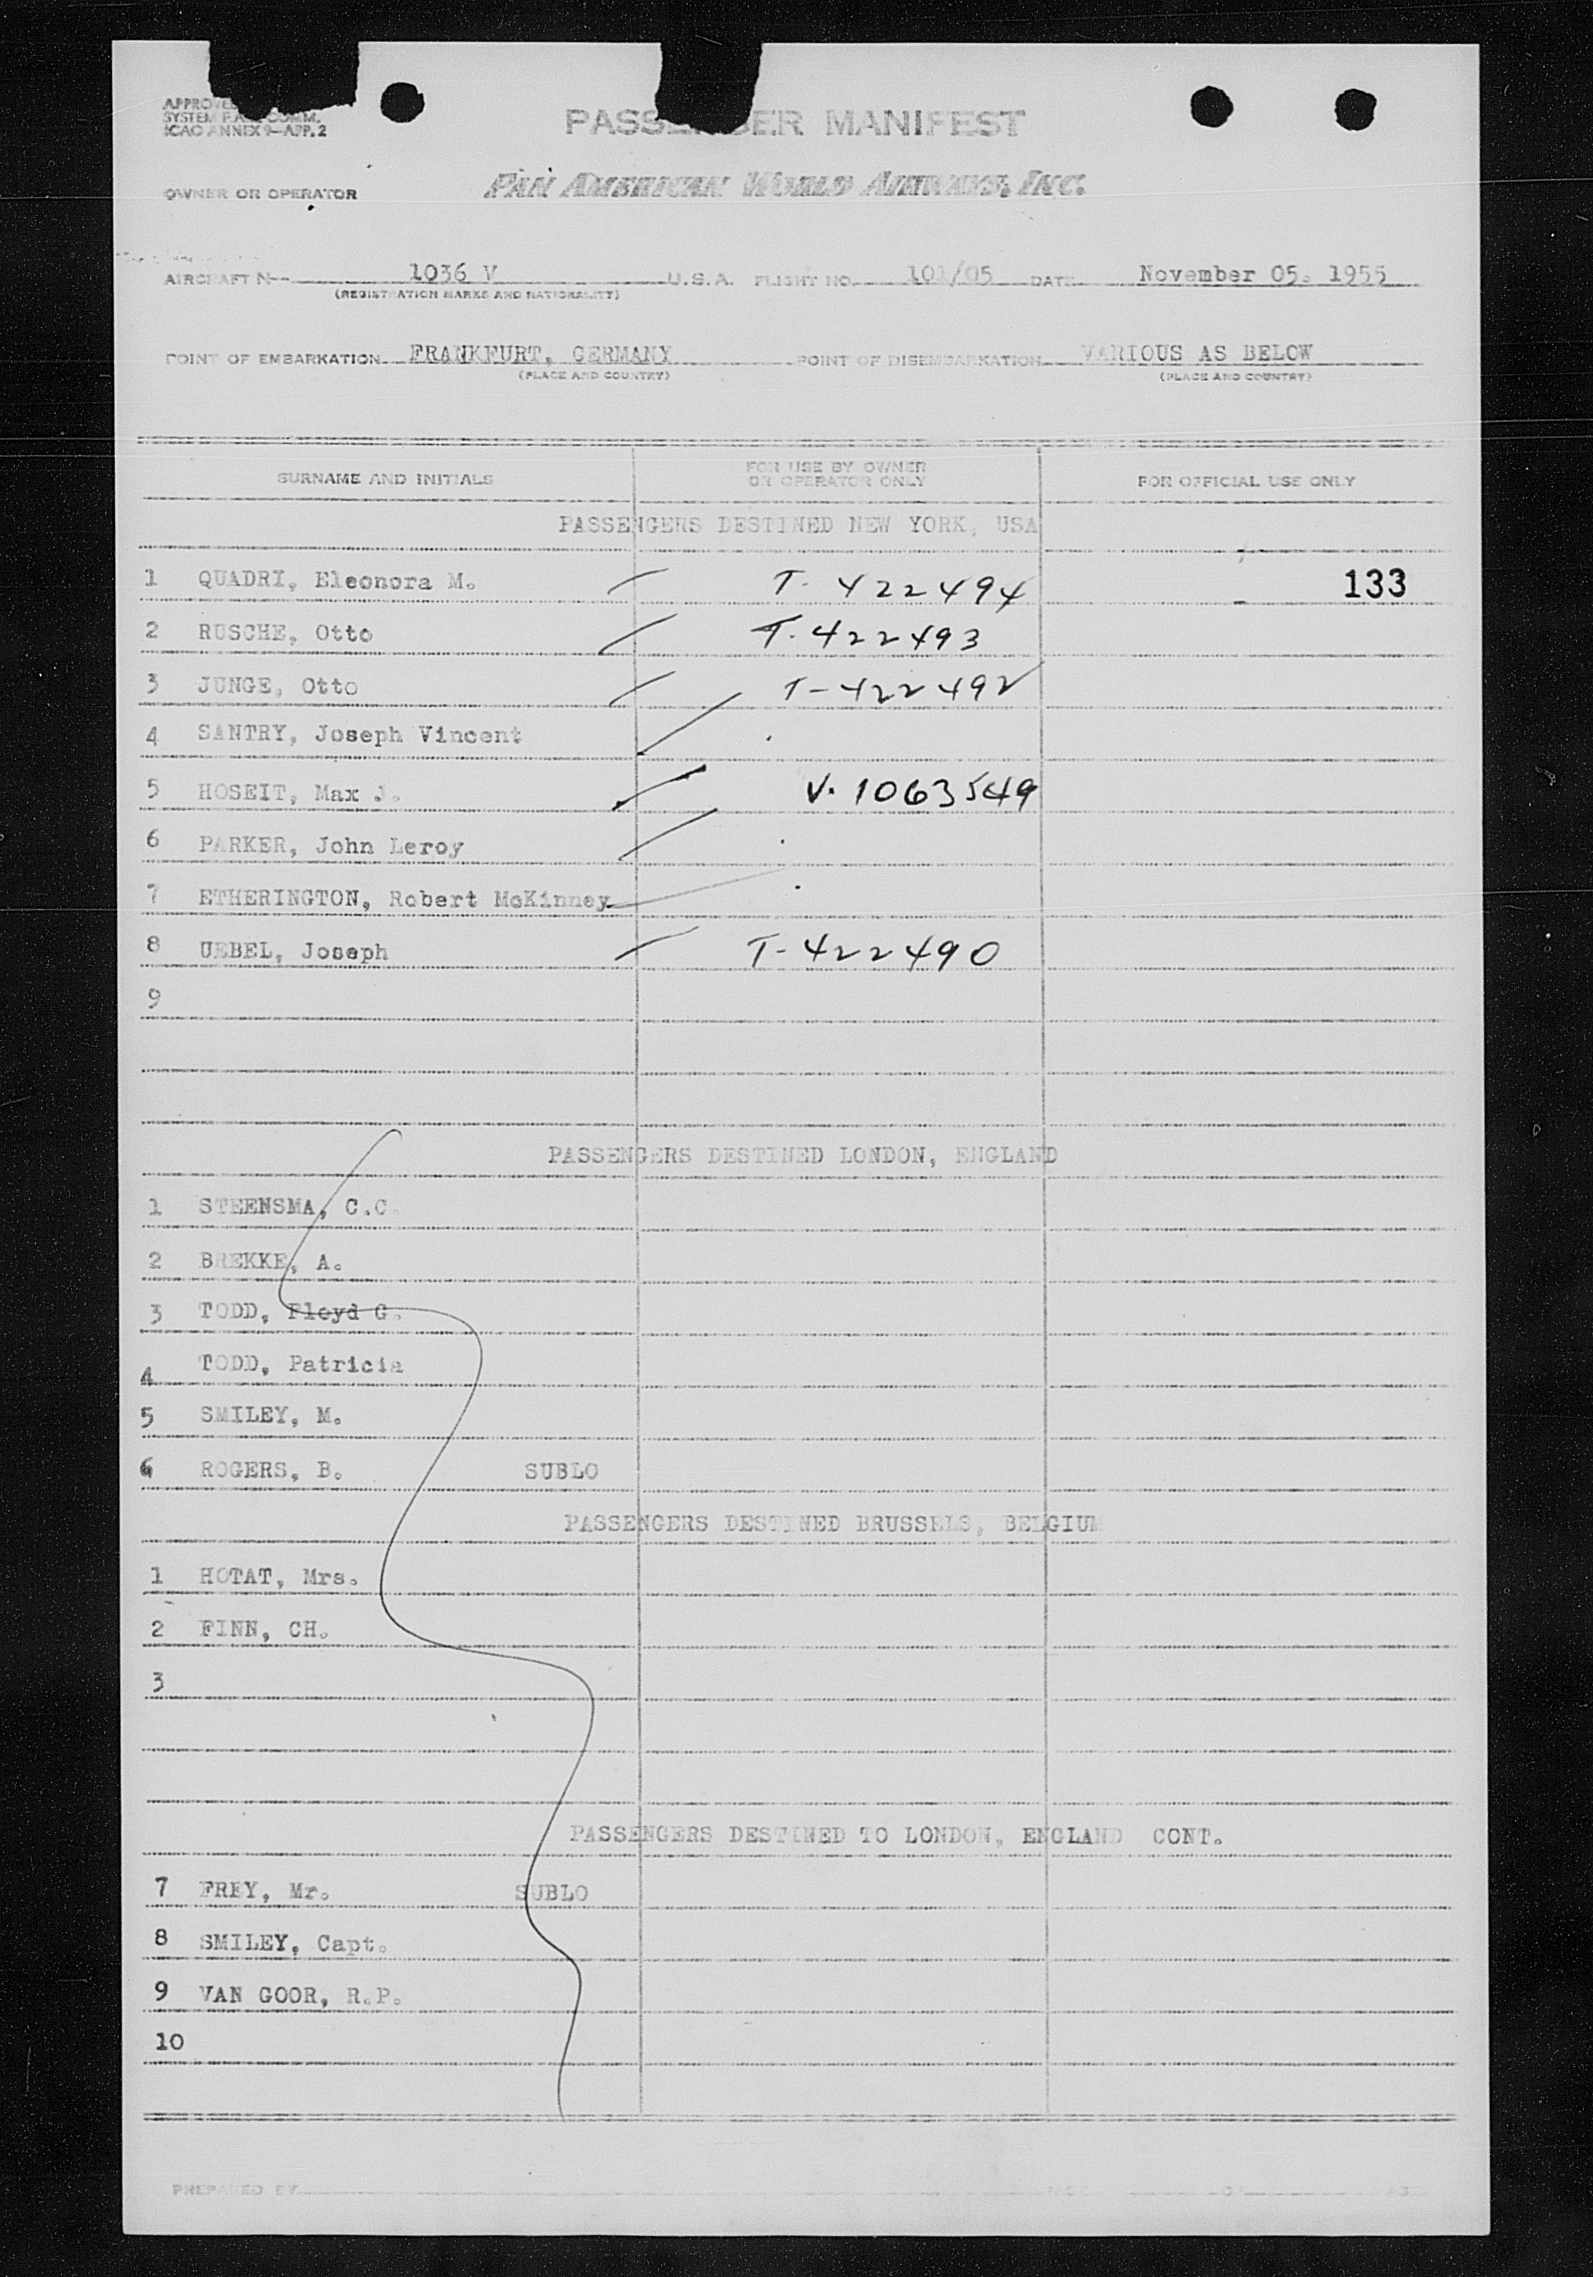 APPROVED
SYSTEM COMM.
ICAO ANNEX 9—APP. 2
PASSENGER MANIFEST
OWNER OR OPERATOR PAN AMERICAN WORLD AIRWAYS, INC.
AIRCRAFT N-- 1036 V U.S.A. FLIGHT NO. 101/05 DATE November 05. 1955
(REGISTRATION MARKS AND NATIONALITY)
POINT OF EMBARKATION FRANKFURT, GERMANY POINT OF DISEMBARKATION VARIOUS AS BELOW
(PLACE AND COUNTRY) (PLACE AND COUNTRY)
SURNAME AND INITIALS FOR USE BY OWNER OR OPERATOR ONLY FOR OFFICIAL USE ONLY
PASSENGERS DESTINED NEW YORK, USA
1 QUADRI, Eleonora M. T. 422494 133
2 RUSCHE, Otto T. 422493
3 JUNGE, Otto T-422492
4 SANTRY, Joseph Vincent
5 HOSEIT, Max J. V. 1063549
6 PARKER, John Leroy
7 ETHERINGTON, Robert McKinney
8 UEBEL, Joseph T-422490
9
PASSENGERS DESTINED LONDON, ENGLAND
1 STEENSMA, C.C.
2 BREKKE, A.
3 TODD, Floyd G.
4 TODD, Patricia
5 SMILEY, M.
6 ROGERS, B. SUBLO
PASSENGERS DESTINED BRUSSELS, BELGIUM
1 HOTAT, Mrs.
2 FINN, CH.
3
PASSENGERS DESTINED TO LONDON, ENGLAND CONT.
7 FREY, Mr. SUBLO
8 SMILEY, Capt.
9 VAN GOOR, R.P.
10
PREPARED BY